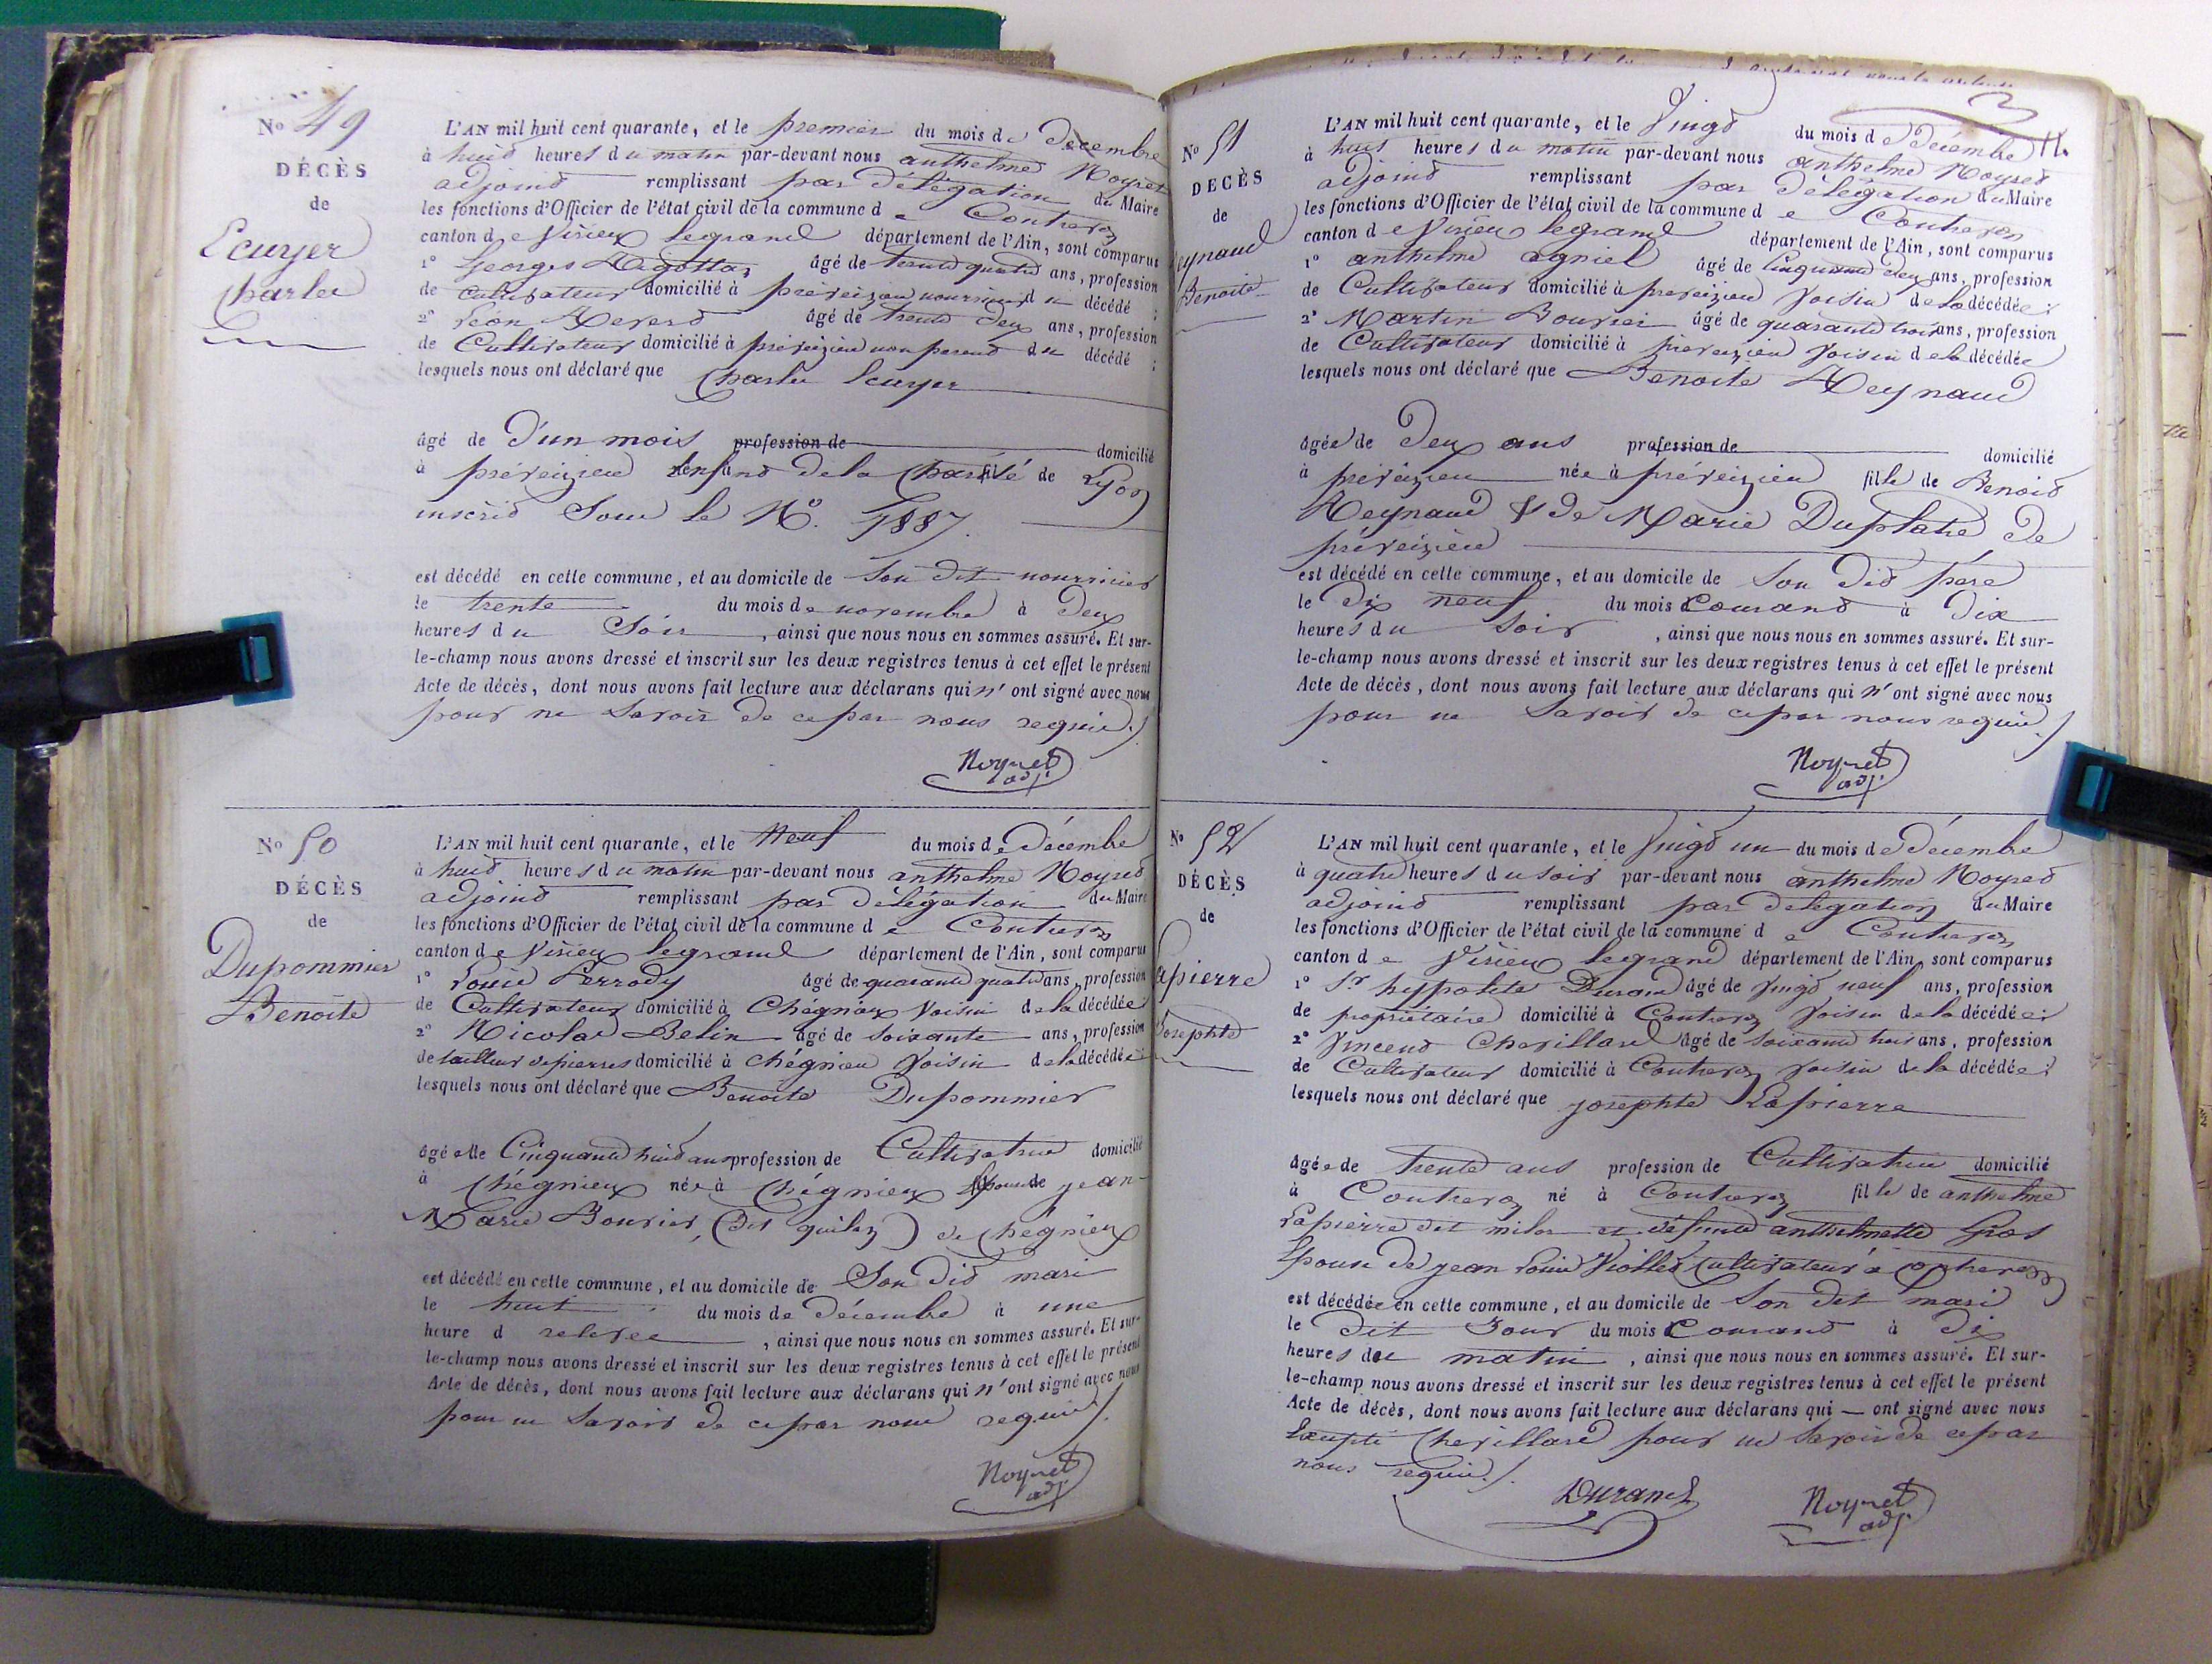 No 49
DÉCÈS
de
Ecuyer
Charles
L'AN mil huit cent quarante, et le premier du mois de décembre
à huit heures du matin par-devant nous anthelme Noyret
adjoint remplissant par délégation du Maire
les fonctions d'Officier de l'état civil de la commune de Contrevoz
canton de Virieu legrand département de l'Ain, sont comparus
1° Georges âgé de trente quatre ans, profession
de Cultivateur domicilié à préveizieu nourricier du décédé ;
2° Léon âgé de trente deux ans, profession
de Cultivateur domicilié à préveizieu non parent du décédé ;
lesquels nous ont déclaré que Charles Ecuyer
âgé de d'un mois profession de domicilié
à préveizieu enfant de la Charité de Lyon
inscrit Sous le No. 1887.
est décédé en cette commune, et au domicile de Son dit nourricier
le trente du mois de novembre à deux
heures du Soir , ainsi que nous nous en sommes assuré. Et sur-
le-champ nous avons dressé et inscrit sur les deux registres tenus à cet effet le présent
Acte de décès, dont nous avons fait lecture aux déclarans qui n'ont signé avec nous
pour ne Savoir de ce par nous requis ./.
Noyret
adj.
No 50
DÉCÈS
de
Dupommier
Benoite
L'AN mil huit cent quarante, et le Neuf du mois de décembre
à huit heures du matin par-devant nous anthelme Noyret
adjoint remplissant par délégation du Maire
les fonctions d'Officier de l'état civil de la commune de Contrevoz
canton de Virieu legrand département de l'Ain, sont comparus
1° Louis Perrody âgé de quarante quatre ans, profession
de Cultivateur domicilié à Chégnieu Voisin de la décédée
2° Nicolas Belin âgé de Soixante ans, profession
de tailleur de pierres domicilié à Chégnieu Voisin de la décédée
lesquels nous ont déclaré que Benoite Dupommier
âgé elle Cinquante huit ans profession de Cultivatrice domicilié
à Chégnieu née à Chégnieu Epouse de jean-
Marie Bouvier, (dit) de Chégnieu
est décédé en cette commune, et au domicile de Son dit mari
le huit du mois de décembre à une
heure d relevee , ainsi que nous nous en sommes assuré. Et sur-
le-champ nous avons dressé et inscrit sur les deux registres tenus à cet effet le présent
Acte de décès, dont nous avons fait lecture aux déclarans qui n'ont signé avec nous
pour ne Savoir de ce par nous requis ./.
Noyret
adj.
No 51
DÉCÈS
de
eynaud
Benoite
L'AN mil huit cent quarante, et le Vingt du mois de décembre
à huit heures du matin par-devant nous anthelme Noyret
adjoint remplissant par délégation du Maire
les fonctions d'Officier de l'état civil de la commune de Contrevoz
canton de Virieu legrand département de l'Ain, sont comparus
1° anthelme agniel âgé de Cinquante deux ans, profession
de Cultivateur domicilié à preveizieu Voisin de la décédée ;
2° Martin Bouvier âgé de quarante trois ans, profession
de Cultivateur domicilié à preveizieu Voisin de la décédée
lesquels nous ont déclaré que Benoite Reynaud
âgée de deux ans profession de domicilié
à préveizieu née à préveizieu fille de Benoit
Reynaud & de Marie Duplatre de
préveizieu
est décédé en cette commune, et au domicile de Son dit père
le dix neuf du mois Courant à dix
heures du Soir , ainsi que nous nous en sommes assuré. Et sur-
le-champ nous avons dressé et inscrit sur les deux registres tenus à cet effet le présent
Acte de décès, dont nous avons fait lecture aux déclarans qui n'ont signé avec nous
pour ne Savoir de ce par nous requis ./.
Noyret
adj.
No 52
DÉCÈS
de
apierre
Josephte
L'AN mil huit cent quarante, et le Vingt un du mois de décembre
à quatre heures du soir par-devant nous anthelme Noyret
adjoint remplissant par délégation du Maire
les fonctions d'Officier de l'état civil de la commune de Contrevoz
canton de Virieu legrand département de l'Ain, sont comparus
1° Sr hypolite Durand âgé de Vingt neuf ans, profession
de propriétaire domicilié à Contrevoz Voisin de la décédée ;
2° Vincent Chevillard âgé de Soixante huit ans, profession
de Cultivateur domicilié à Contrevoz voisin de la décédée ;
lesquels nous ont déclaré que josephte Lapierre
âgée de trente ans profession de Cultivatrice domicilié
à Contrevoz né à Contrevoz fille de anthelme
Lapierre dit et défunte anthelmette Gros
Epouse de jean Louis Viollet Cultivateur à Contrevoz
est décédée en cette commune, et au domicile de Son dit mari
le dit Jour du mois Courant à dix
heures du matin , ainsi que nous nous en sommes assuré. Et sur-
le-champ nous avons dressé et inscrit sur les deux registres tenus à cet effet le présent
Acte de décès, dont nous avons fait lecture aux déclarans qui — ont signé avec nous
Excepté Chevillard pour ne Savoir de ce par
nous requis ./.
Durand
Noyret
adj.